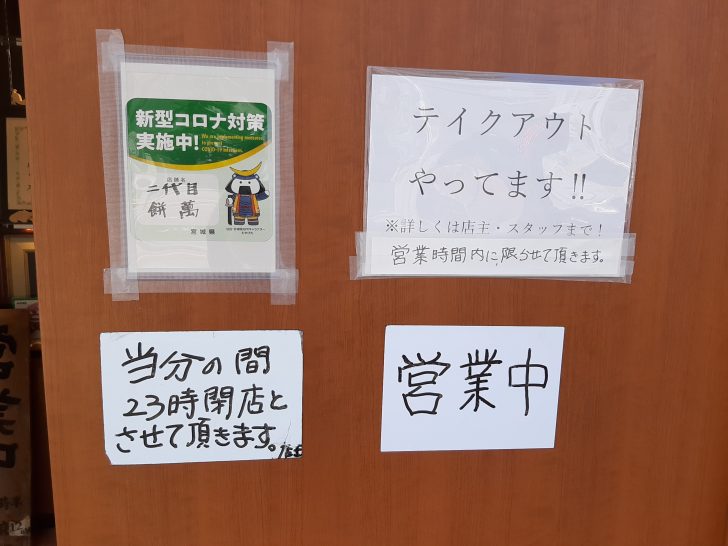 新型コロナ対策
実施中!
We are implementing measures
to prevent
COVID-19 infections.
店舗名
二代目
餅萬
宮城県
テイクアウト
やってます!!
※詳しくは店主・スタッフまで!
営業時間内に限らせて頂きます。
当分の間
23時閉店と
させて頂きます。
店主
営業中